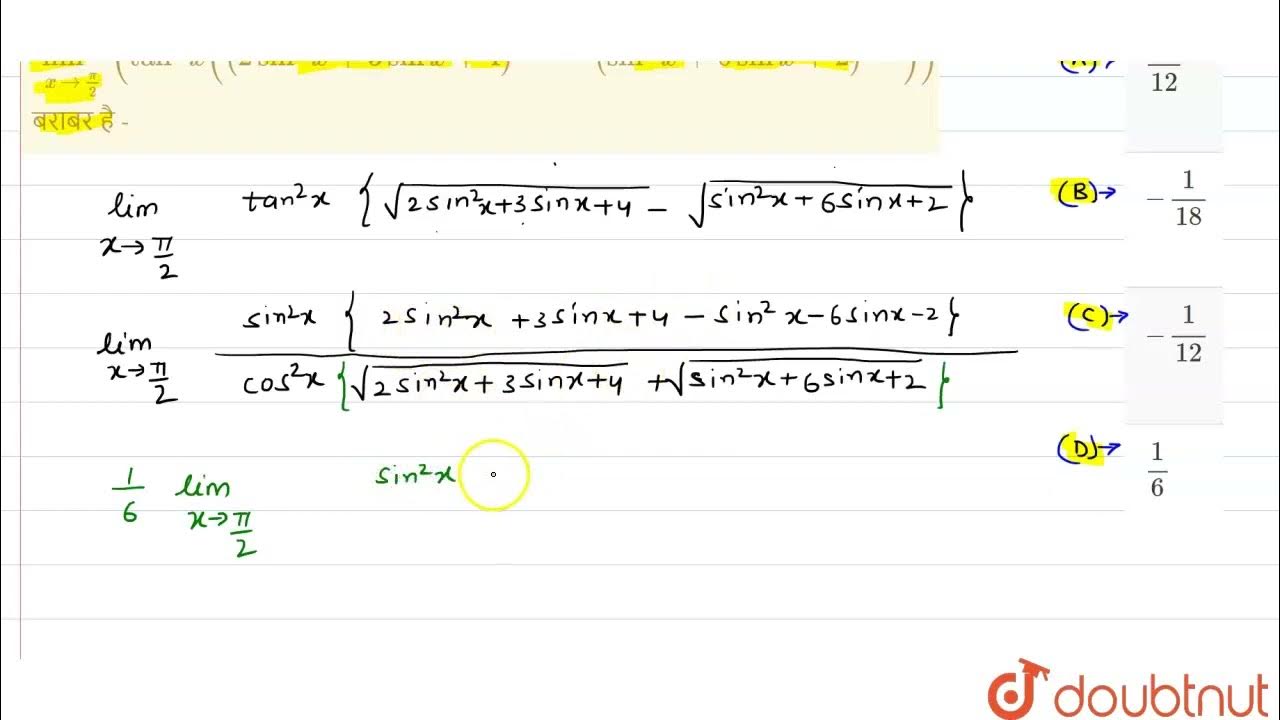 x→π/2
बराबर है -
12
lim x→π/2 tan²x {√(2sin²x+3sinx+4) − √(sin²x+6sinx+2)}
(B)→ −1/18
lim x→π/2 sin²x {2sin²x+3sinx+4−sin²x−6sinx−2} / cos²x {√(2sin²x+3sinx+4) + √(sin²x+6sinx+2)}
(C)→ −1/12
(D)→ 1/6
1/6 lim x→π/2 sin²x
doubtnut